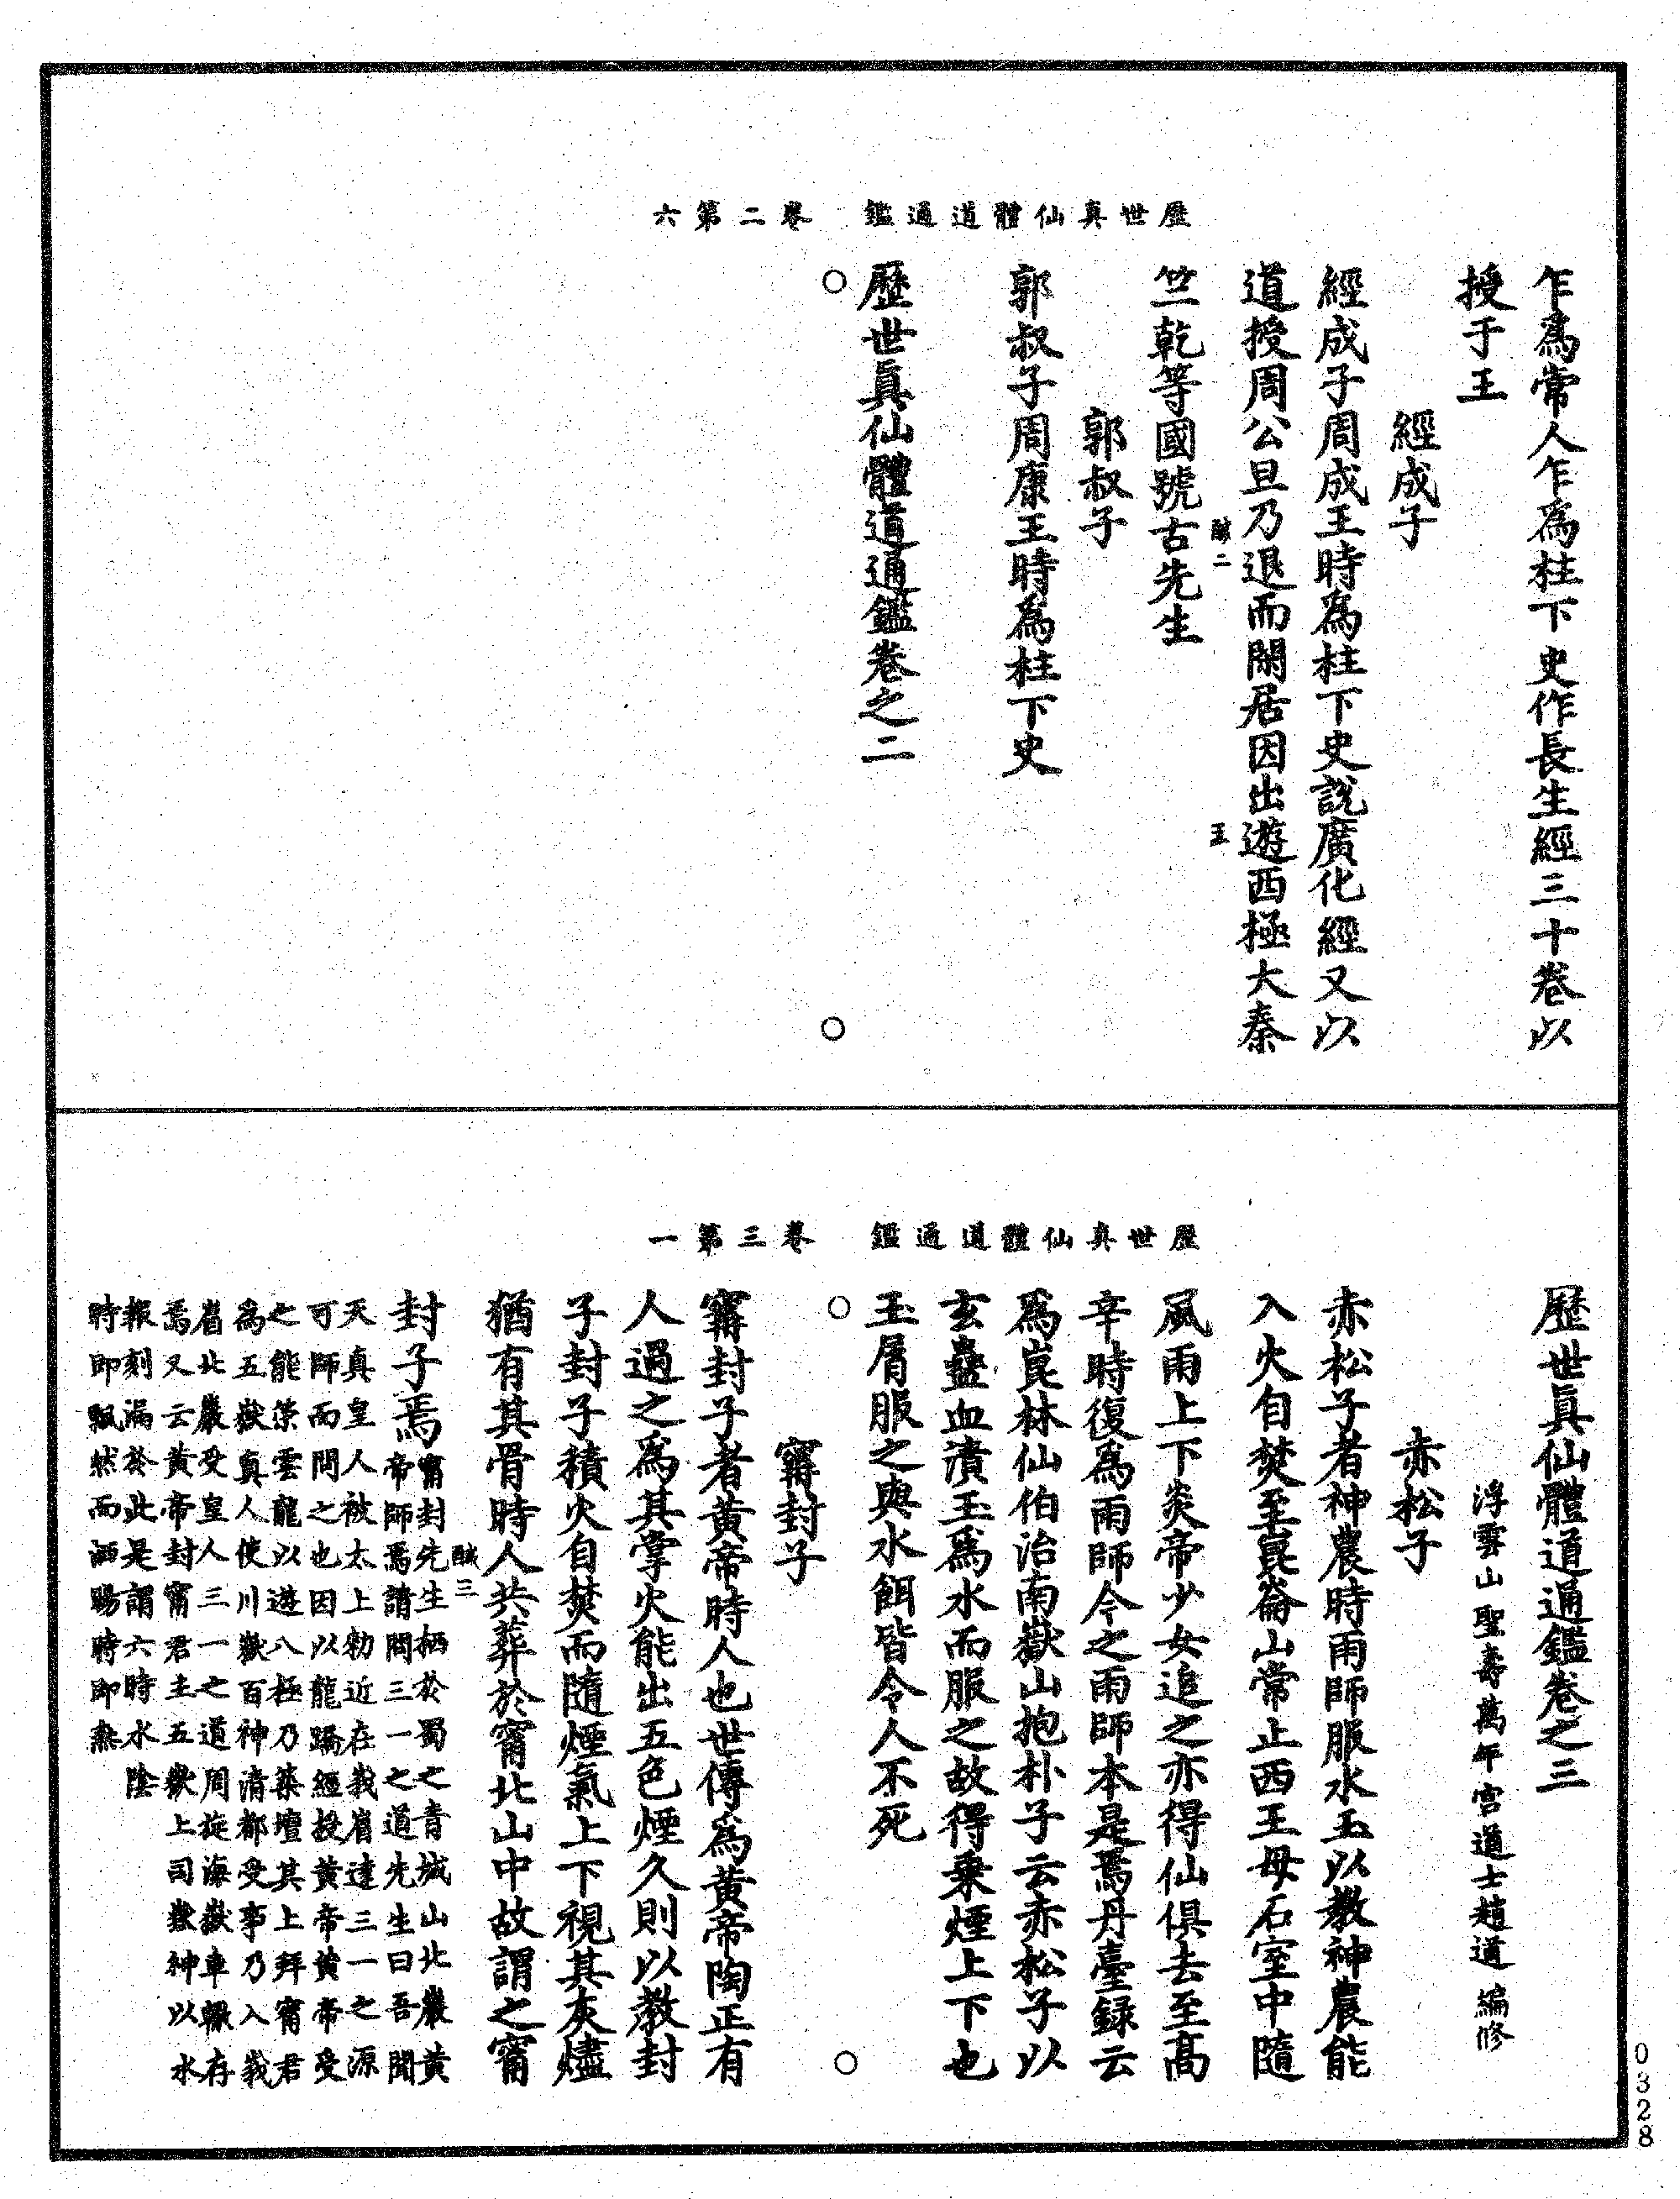 歷世真仙體道通鑑　卷二第六
乍爲常人乍爲柱下史作長生經三十卷以
授于王
經成子
經成子周成王時爲柱下史說廣化經又以
道授周公旦乃退而閑居因出遊西極大秦
二
五
竺乾等國號古先生
郭叔子
郭叔子周康王時爲柱下史
歷世眞仙體道通鑑卷之二
歷世真仙體道通鑑　卷三第一
歷世眞仙體道通鑑卷之三
浮雲山聖壽萬年宮道士趙道一編修
赤松子
赤松子者神農時雨師服水玉以教神農能
入火自焚至崑崙山常止西王母石室中隨
風雨上下炎帝少女追之亦得仙俱去至高
辛時復爲雨師今之雨師本是焉丹臺録云
爲崑林仙伯治南嶽山抱朴子云赤松子以
玄蟲血漬玉爲水而服之故得乗煙上下也
玉屑服之與水餌皆令人不死
甯封子
甯封子者黃帝時人也世傳爲黃帝陶正有
人過之爲其掌火能出五色煙久則以教封
子封子積火自焚而隨煙氣上下視其灰燼
猶有其骨時人共葬於甯北山中故謂之甯
三
封子焉
甯封先生栖於蜀之青城山北巖黃
帝師焉請問三一之道先生曰吾聞
天真皇人被太上勑近在峩嵋達三一之源
可師而問之也因以龍蹻經授黃帝黃帝受
之能策雲龍以遊八極乃築壇其上拜甯君
爲五嶽真人使川嶽百神清都受事乃入峩
嵋北巖受皇人三一之道周旋海嶽車轍存
焉又云黃帝封甯君主五嶽上司嶽神以水
報刻漏於此是謂六時水陰
時即飄然而洒暘時即無
0328